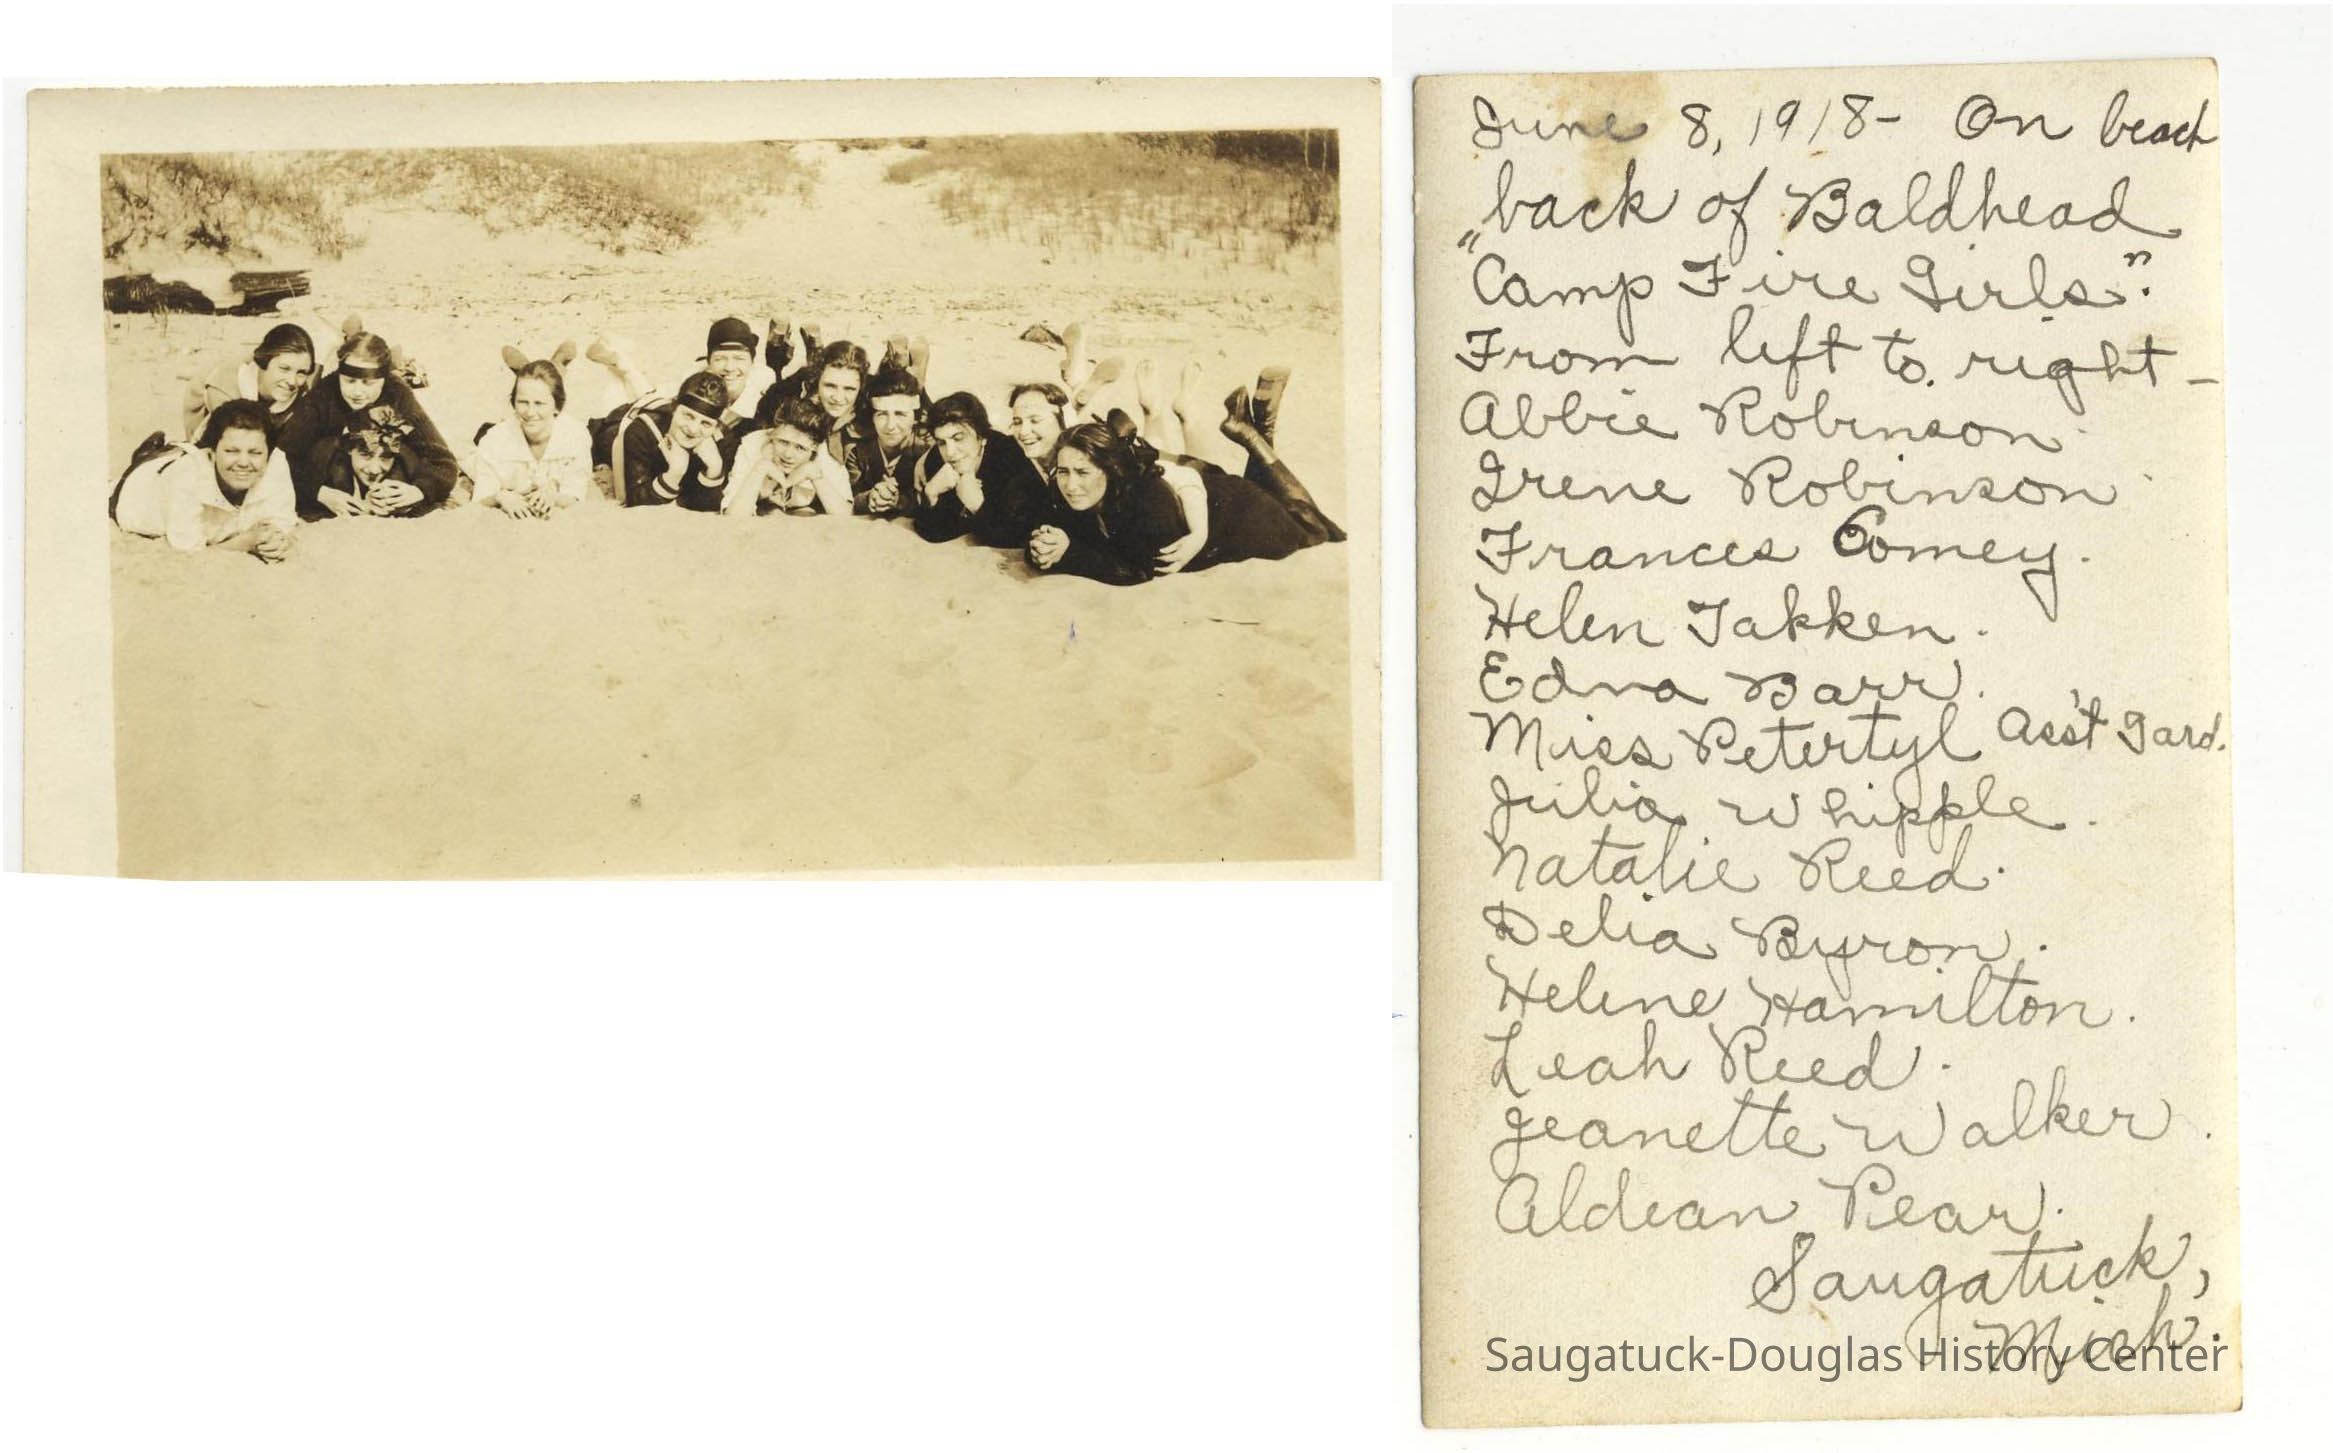 June 8, 1918- On beach
back of Baldhead
"Camp Fire Girls".
From left to right -
Abbie Robinson
Irene Robinson
Frances Comey.
Helen Takken.
Edna Barr.
Miss Petertyl Ass't Gard.
Julia Whipple.
Natalie Reed.
Delia Byron.
Helene Hamilton.
Leah Reed.
Jeanette Walker.
Aldean Pear.
Saugatuck,
Mich.
Saugatuck-Douglas History Center